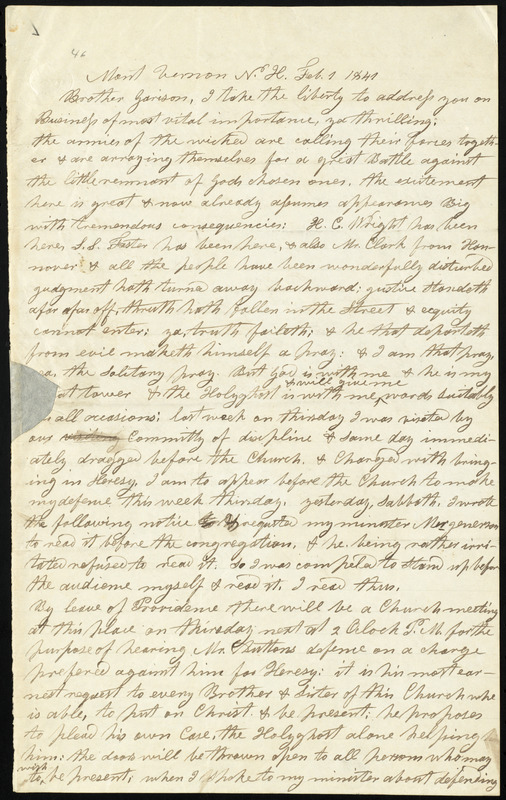 46
Mont Vernon N. H. Feb. 1 1841
Brother Garison, I take the liberty to address you on
Business of most vital importance, ya thrilling;
the armies of the wicked are calling their forces togeth-
er & are arraying themselves for a great Battle against
the little remnant of Gods chosen ones. the exitement
here is great & now already assumes appearances Big
with tremendous consequencies: H. C. Wright has been
here, S. S. Foster has been here, & also Mr. Clark from Han-
nover & all the people have been wonderfully disturbed
judgment hath turned away backward; justice standeth
afar afar off, thruth hath fallen in the street & equity
cannot enter; ya, truth faileth; & he that departeth
from evil maketh himself a pray: & I am that pray,
ya, the solitary pray. But God is with me & he is my
tower & the Holyghost is with me, & will give me words suitably
all occasions; last week on thirsday I was visited by
our Committy of discipline & same day immedi-
ately dragged before the Church, & Charged with bring-
ing in Heresy. I am to appear before the Church to make
my defence this week thirsday. yesterday, Sabbath, I wrote
the following notice & requested my minister Mr
to read it before the congregation, & he being rather irri-
tated refused to read it. so I was compeled to stand up before
the audience myself & read it. I read thus.
By leave of Providence there will be a Church meeting
at this place on thirsday next at 2 Oclock P. M. for the
purpose of hearing Mr. defence on a charge
prefered against him for Heresy: it is his most ear-
nest request to every Brother & Sister of this Church who
is able, to put on Christ & be present; he proposes
to plead his own Case, the Holyghost alone helping
him: the doors will be thrown open to all persons who may
wish to, be present, when I spoke to my minister about defending